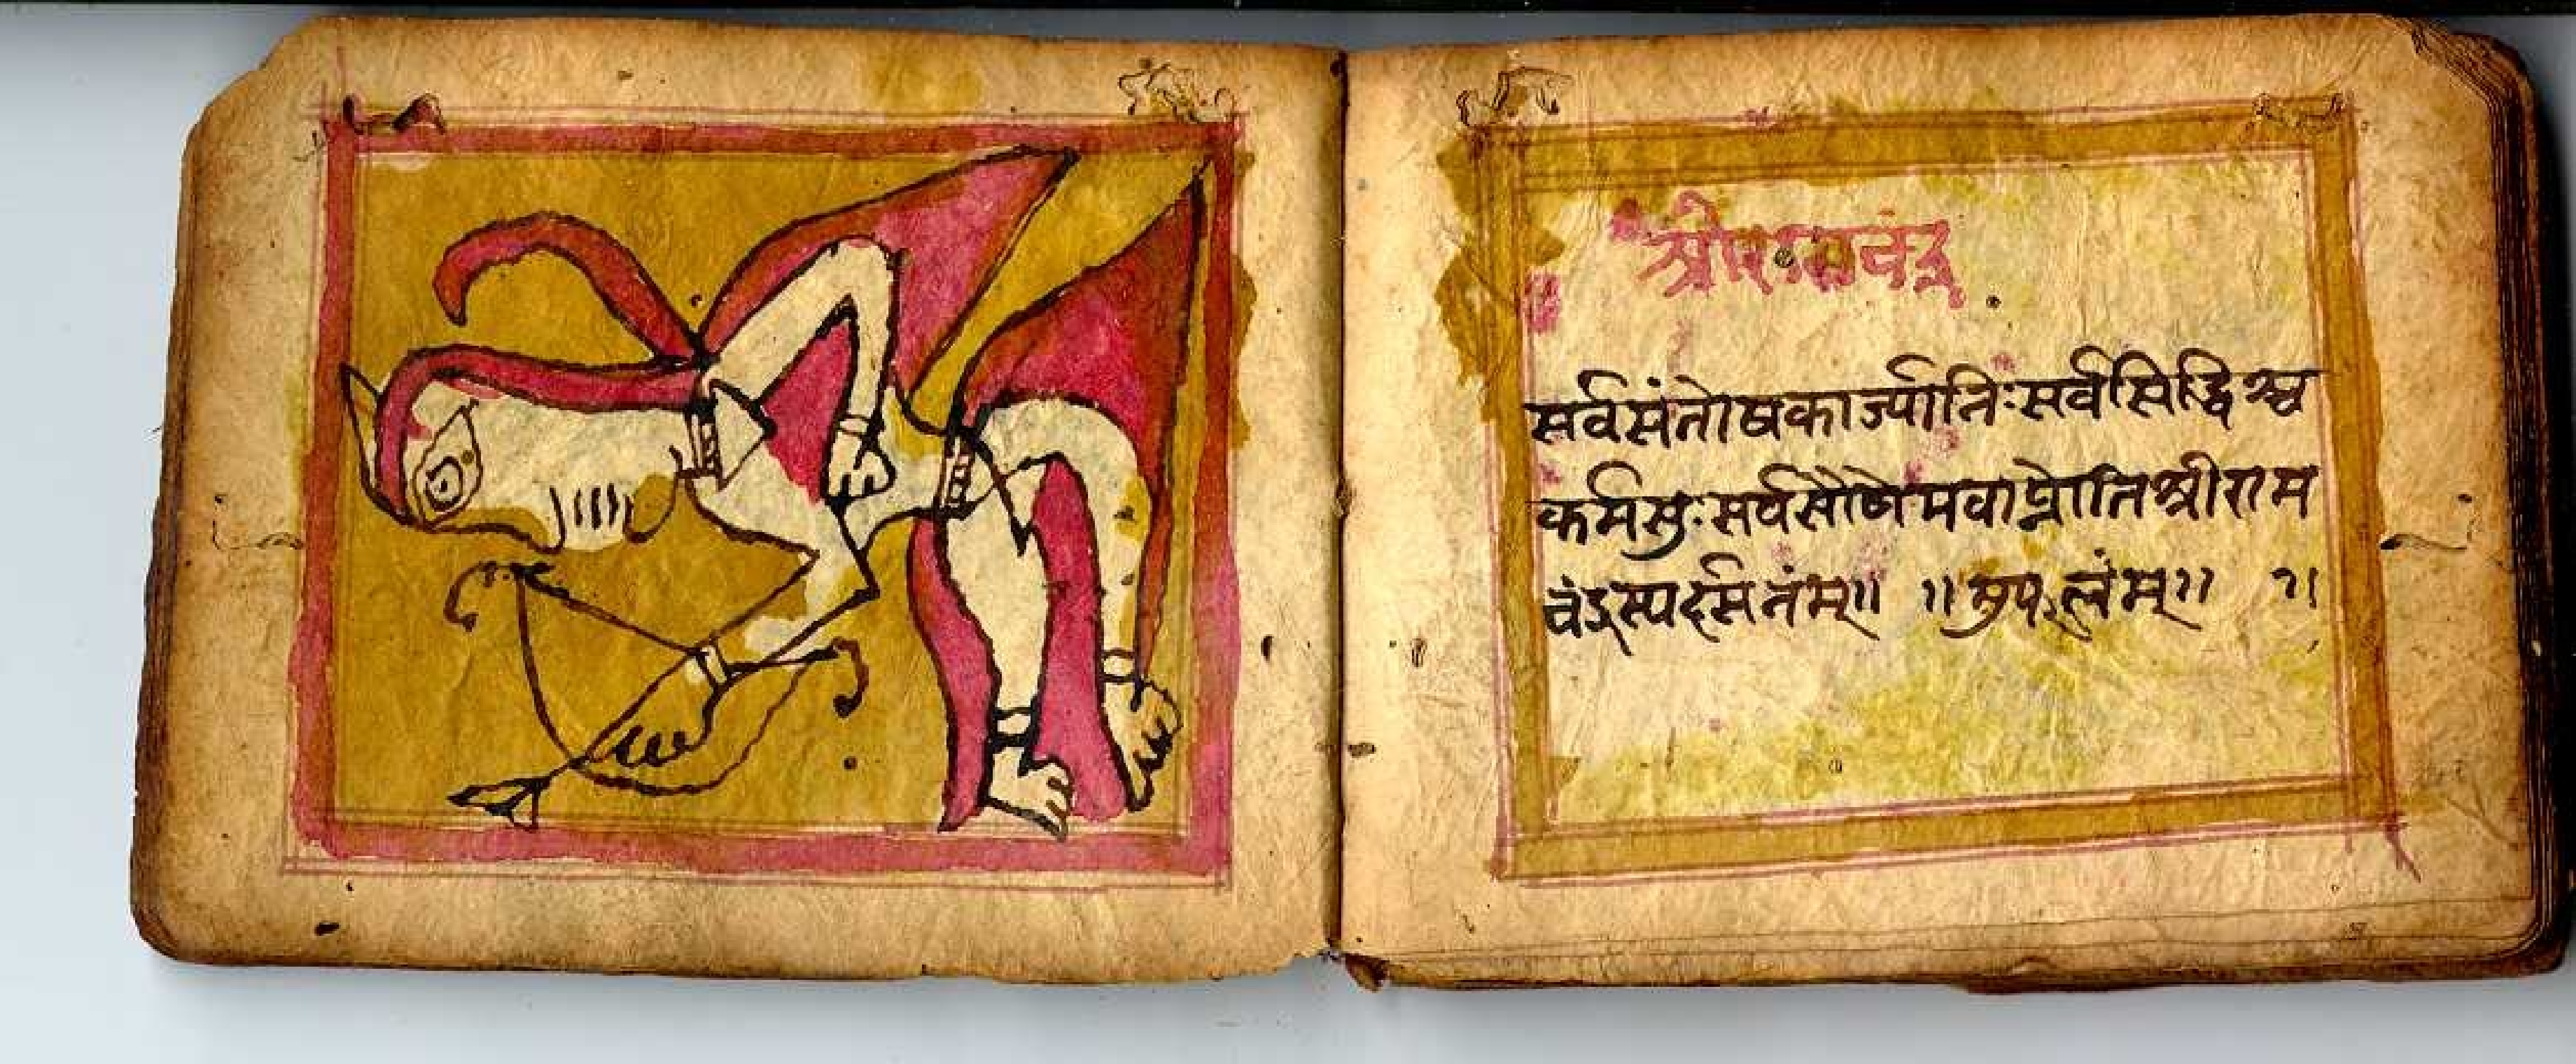 श्रीरामचंद्र
सर्वसंतोषकार्ज्यानिःसर्वसिद्धिश्च
कर्मसुःसर्वसौष्यमवाप्नोतिश्रीराम
चंद्रस्यदर्सनंम्॥ ॥